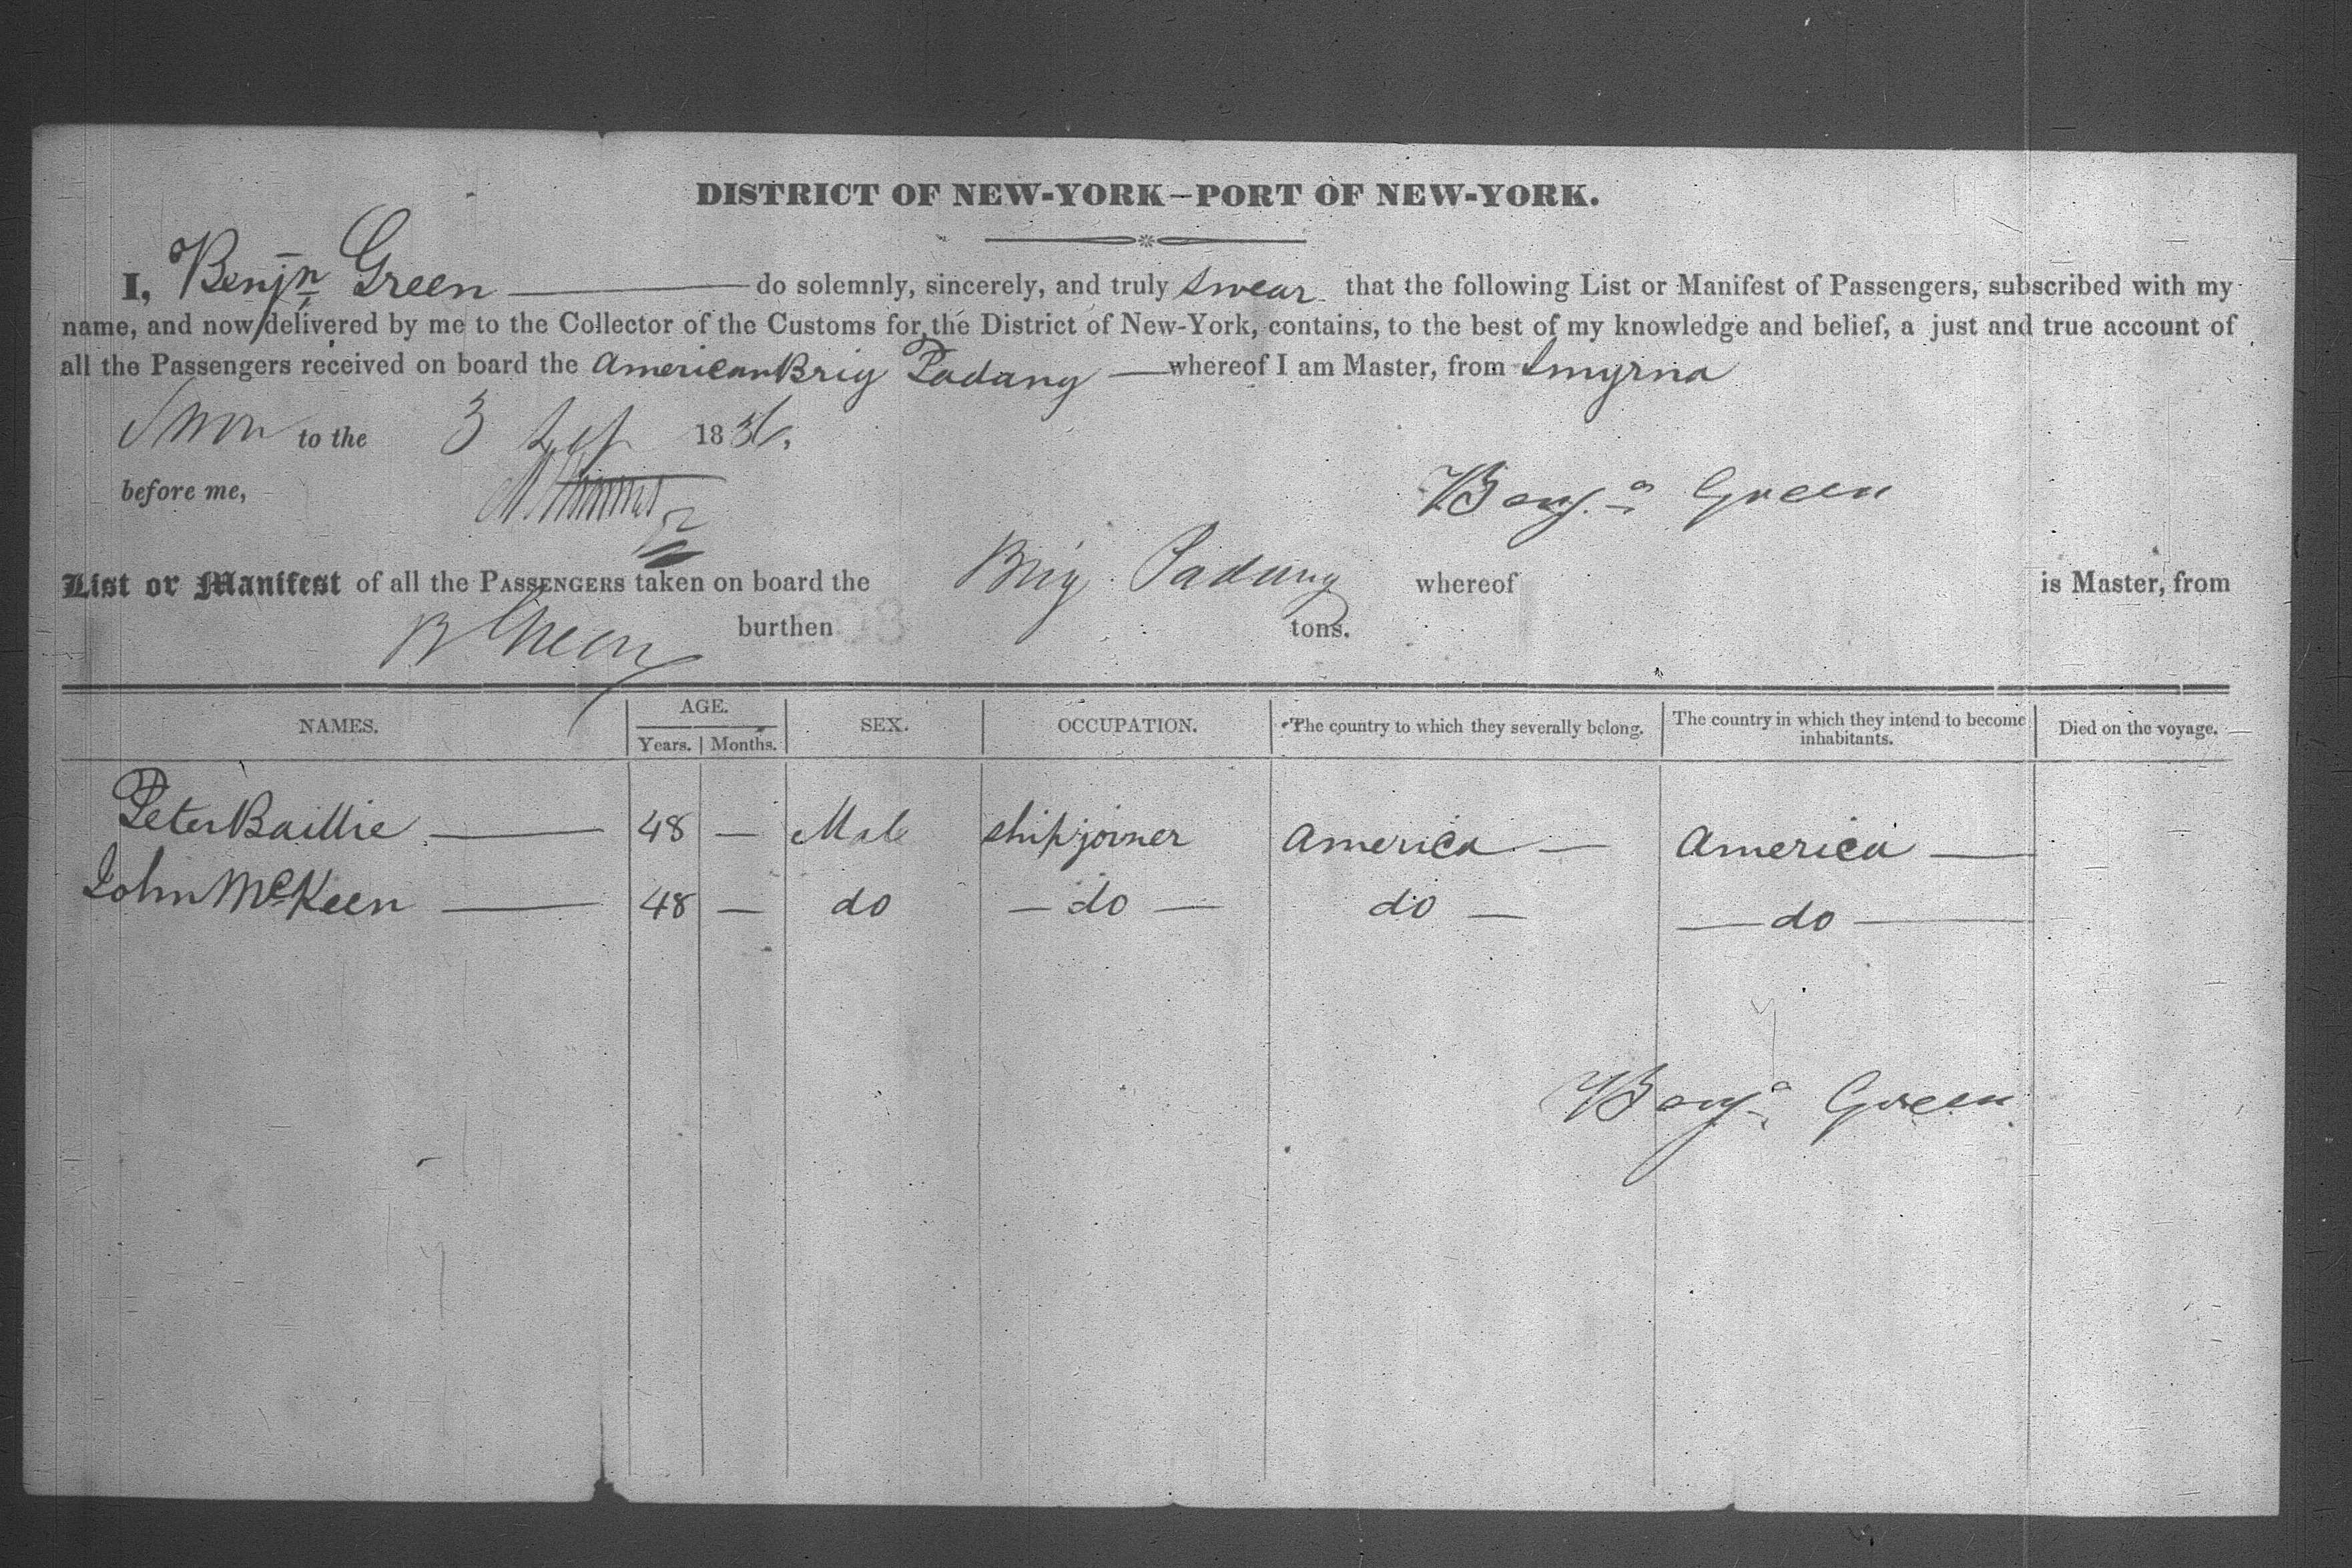 DISTRICT OF NEW-YORK—PORT OF NEW-YORK.
I, Benjn Green do solemnly, sincerely, and truly swear that the following List or Manifest of Passengers, subscribed with my
name, and now delivered by me to the Collector of the Customs for the District of New-York, contains, to the best of my knowledge and belief, a just and true account of
all the Passengers received on board the American Brig Padang whereof I am Master, from Smyrna
Sworn to the 3 Sep 1836,
before me,
Benjn Green
List or Manifest of all the PASSENGERS taken on board the Brig Padang whereof is Master, from
B Green burthen tons.
NAMES. AGE. SEX. OCCUPATION. The country to which they severally belong. The country in which they intend to become inhabitants. Died on the voyage.
Years. Months.
Peter Baillie — 48 — Male ship joiner America — America —
John McKeen — 48 — do — do — do — — do —
Benjn Green